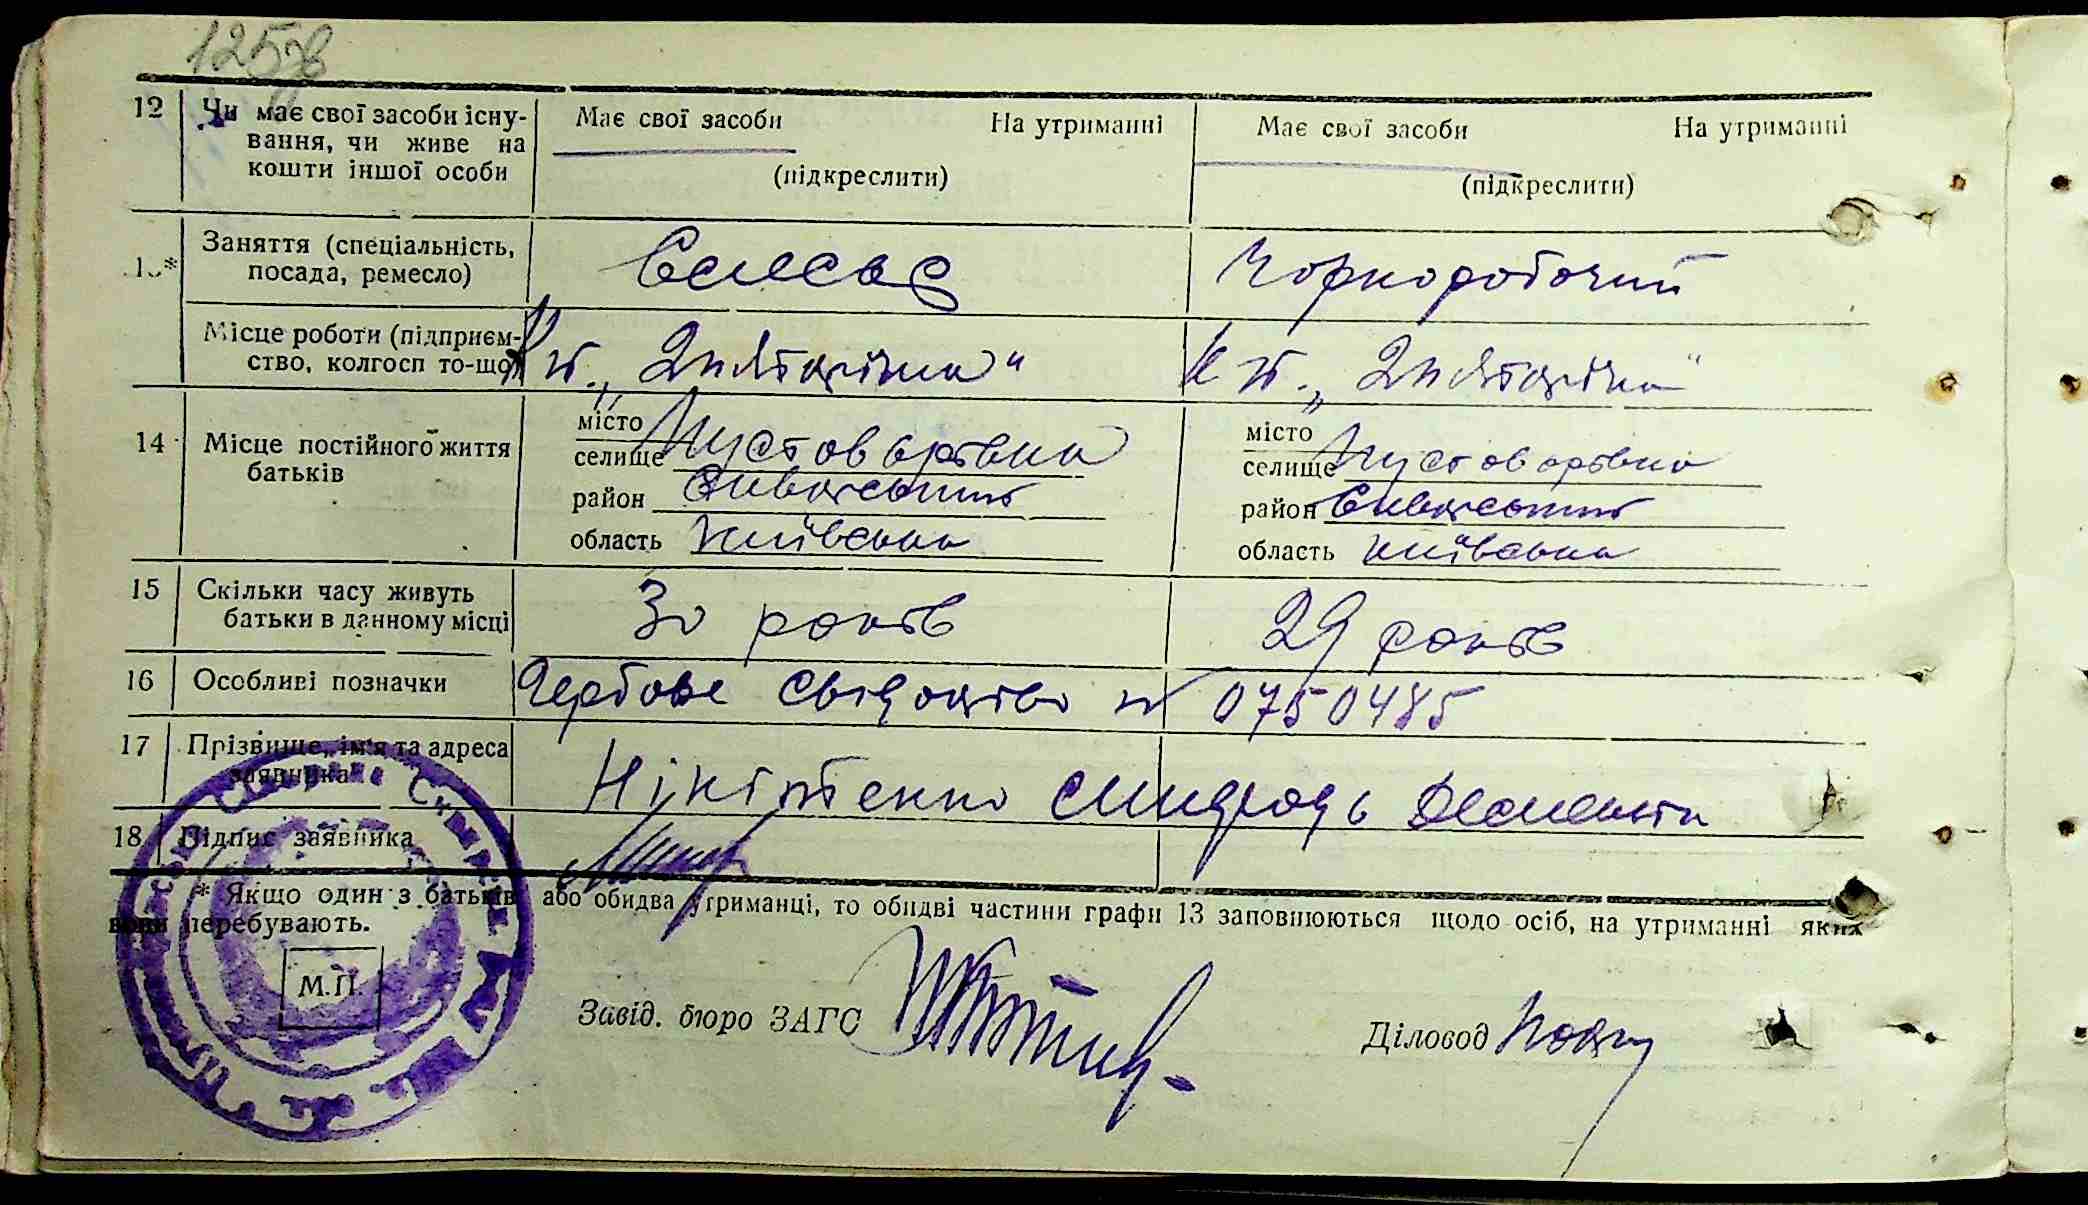 125зв
12 Чи має свої засоби існу- Має свої засоби На утриманні Має свої засоби На утриманні
вання, чи живе на
кошти іншої особи (підкреслити) (підкреслити)
13* Заняття (спеціальність, Чорноробочий
посада, ремесло)
Місце роботи (підприєм-
ство, колгосп то-що) к-п. „2 п'ятирічка“ к-п. „2 п'ятирічка“
14 Місце постійного життя місто Пустоварівка місто Пустоварівка
батьків селище селище
район Сквирський район Сквирський
область Київська область Київська
15 Скільки часу живуть 30 років 29 років
батьки в данному місці
16 Особливі позначки Гербове свідоцтво № 0750485
17 Прізвище, ім'я та адреса Нікітенко
заявника
18 Підпис заявника
* Якщо один з батьків або обидва утриманці, то обидві частини графи 13 заповнюються щодо осіб, на утриманні яких
вони перебувають.
М.П.
Завід. бюро ЗАГС Діловод